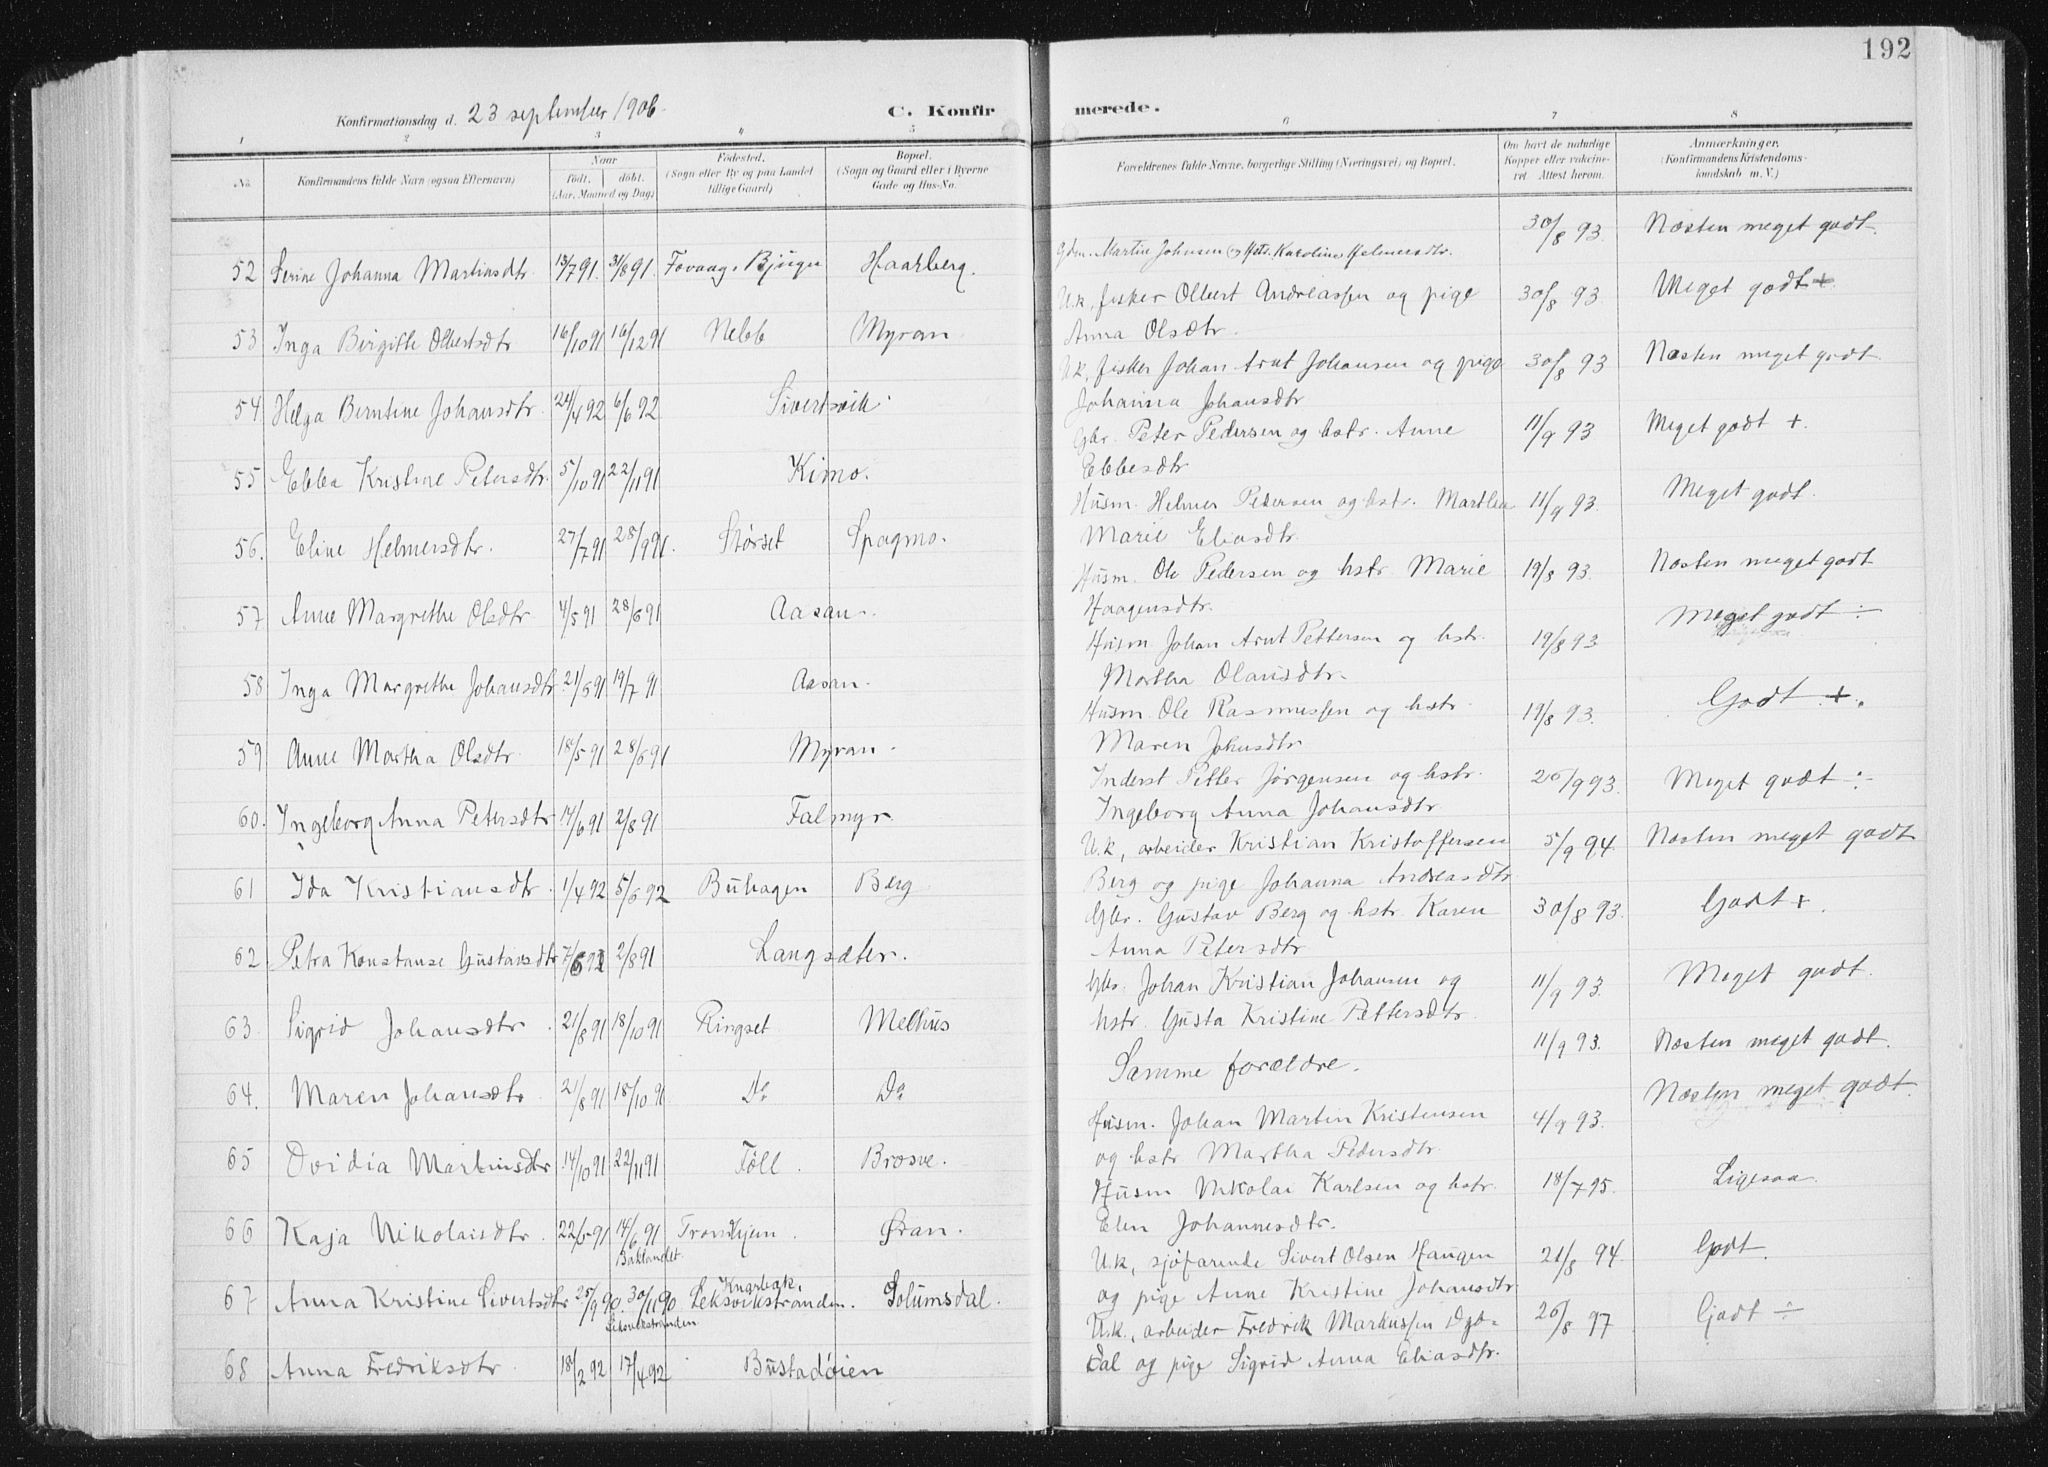 192
Konfirmationsdag d. 23 september 1906.
C. Konfirmerede.
1 2 3 4 5 6 7 8
No.
Konfirmandens fulde Navn (ogsaa Efternavn)
Naar
født. døbt.
(Aar, Maaned og Dag)
Fødested.
(Sogn eller By og paa Landet tillige Gaard)
Bopæl.
(Sogn og Gaard eller i Byerne Gade og Hus-No.
Forældrenes fulde Navne, borgerlige Stilling (Næringsvei) og Bopæl.
Om havt de naturlige Kopper eller vaccineret Attest herom.
Anmærkninger.
(Konfirmandens Kristendomskundskab m. V.)
52 Serine Johanna Martinsdtr. 13/7 91. 31/8 91. Fovaag. Bjugn Haarberg. Gdm. Martin Johnsen og Hst. Karoline Helmersdtr. 30/8 93. Næsten meget godt.
53 Inga Birgitte Olbertsdtr 16/10 91 16/12 91 Nebb Myran. U.k, fisker Olbert Andreassen og pige
Anna Olsdtr. 30/8 93 Meget godt +
54. Helga Berntine Johansdtr. 24/4 92 6/6 92 Sivertsvik. U.k, fisker Johan Arnt Johansen og pige
Johanna Johansdtr 30/8 93 Næsten meget godt.
55 Ebba Kristine Petersdtr. 5/10 91 22/11 91 Kimo. Gbr. Peter Pedersen og hstr. Anne
Ebbesdtr 11/9 93 Meget godt +.
56. Eline Helmersdtr. 27/7 91 28/9 91. Størset Spagmo. Husm. Helmer Pedersen og hstr. Marthea
Marie Eliasdtr. 11/9 93. Meget godt.
57 Anne Margrethe Olsdtr. 4/5 91 28/6 91 Aasan. Husm. Ole Pedersen og hstr. Marie
Haagensdtr. 19/8 93. Næsten meget godt
58 Inga Margrethe Johansdtr. 21/5 91 19/7 91 Aasan. Husm. Johan Arnt Pettersen og hstr.
Martha Olausdtr. 19/8 93 Meget godt ÷
59 Anne Martha Olsdtr. 18/5 91 28/6 91 Myran. Husm. Ole Rasmussen og hstr.
Maren Johnsdtr 19/8 93. Godt +.
60. Ingeborg Anna Petersdtr 14/6 91 2/8 91 Falmyr. Inderst Petter Jørgensen og hstr.
Ingeborg Anna Johansdtr. 20/9 93. Meget godt ÷
61 Ida Kristiansdtr. 1/4 92 5/6 92 Buhagen Berg. U.k, arbeider Kristian Kristoffersen
Berg og pige Johanna Andreasdtr. 5/9 94. Næsten meget godt
62 Petra Konstanse Gustavsdtr 7/6 91 2/8 91 Langsæter. Gbr. Gustav Berg og hstr. Karen
Anna Petersdtr 30/8 93. Godt +.
63. Sigrid Johansdtr. 21/8 91 18/10 91 Ringset Melhus Gbr. Johan Kristian Johansen og
hstr. Gusta Kristine Pettersdtr. 11/9 93. Meget godt.
64. Maren Johansdtr. 21/8 91 18/10 91 Do Do Samme forældre. 11/9 93. Næsten meget godt.
65 Ovidia Martinsdtr 14/10 91 22/11 91 Føll. Brøsve. Husm. Johan Martin Kristensen
og hstr Martha Pedersdtr. 4/9 93. Næsten meget godt.
66 Kaja Nikolaisdtr. 22/5 91 14/6 91 Baklandet. Trondhjem. Øran. Husm Nikolai Karlsen og hstr.
Elen Johannesdtr. 18/7 95. Ligesaa.
67 Anna Kristine Sivertsdtr 25/9 90. 30/11 90 Leksvikstranden Knarbak, Leksvikstranden. Solumsdal. U.k, sjøfarende Sivert Olsen Haugen
og pige Anne Kristine Johansdtr 21/8 94. Godt.
68 Anna Fredriksdtr. 18/2 92 17/4 92 Bustadøien U.k., arbeider Fredrik Markussen Dybdal og pige Sigrid Anna Eliasdtr. 26/8 97 Godt ÷